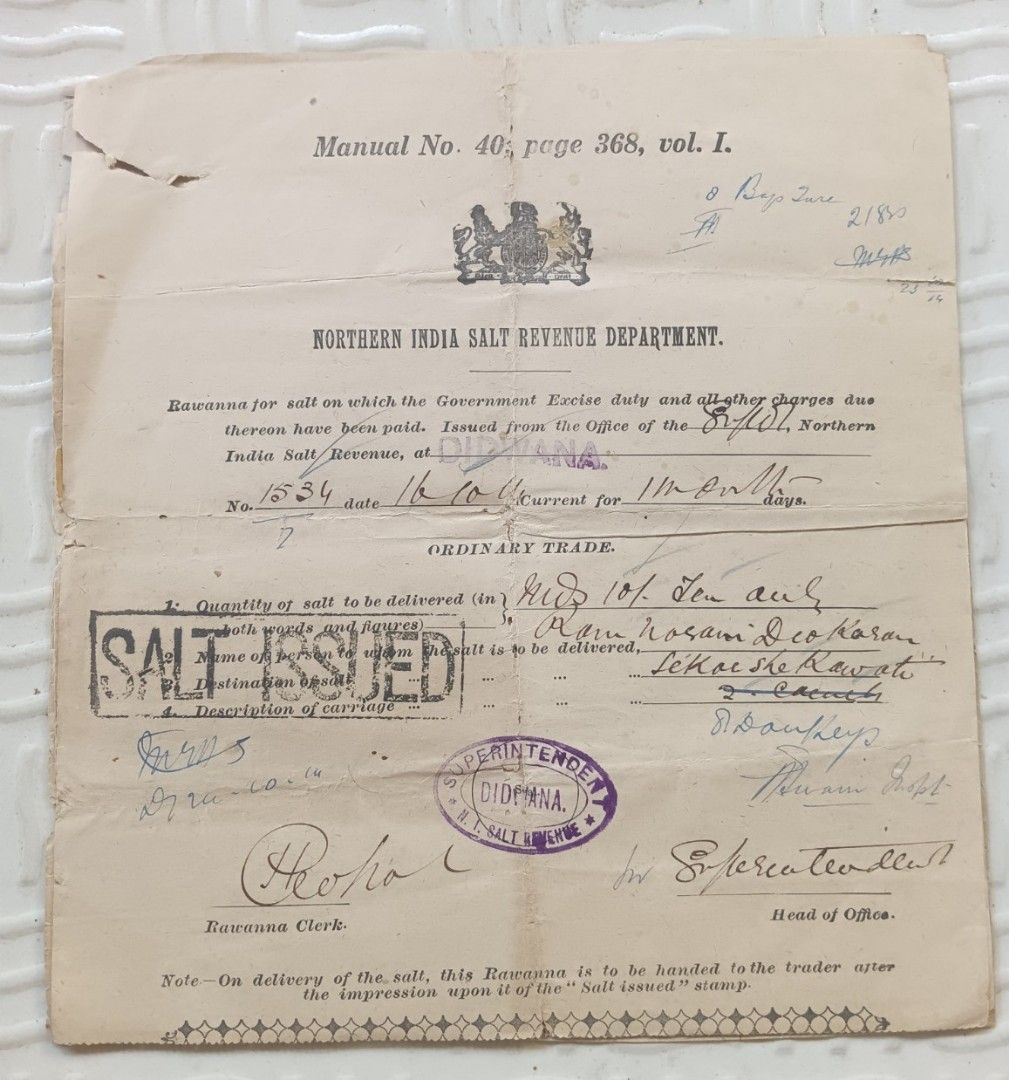 Manual No. 40, page 368, vol. I.
8 Bags
2180
23
NORTHERN INDIA SALT REVENUE DEPARTMENT.
Rawanna for salt on which the Government Excise duty and all other charges due
thereon have been paid. Issued from the Office of the Supdt. Northern
India Salt Revenue, at DIDWANA.
No. 1534 date 16 Current for 1 month days.
7
ORDINARY TRADE.
1. Quantity of salt to be delivered (in Mds 10/- Ten only
both words and figures)
2. Name of person to whom the salt is to be delivered, Ram
3. Destination of salt ... ... ...
4. Description of carriage ... ... ... 2 Camels
SALT ISSUED
8 Donkeys
SUPERINTENDENT
DIDWANA.
N. I. SALT REVENUE
for Superintendent
Rawanna Clerk.
Head of Office.
Note—On delivery of the salt, this Rawanna is to be handed to the trader after
the impression upon it of the "Salt issued" stamp.